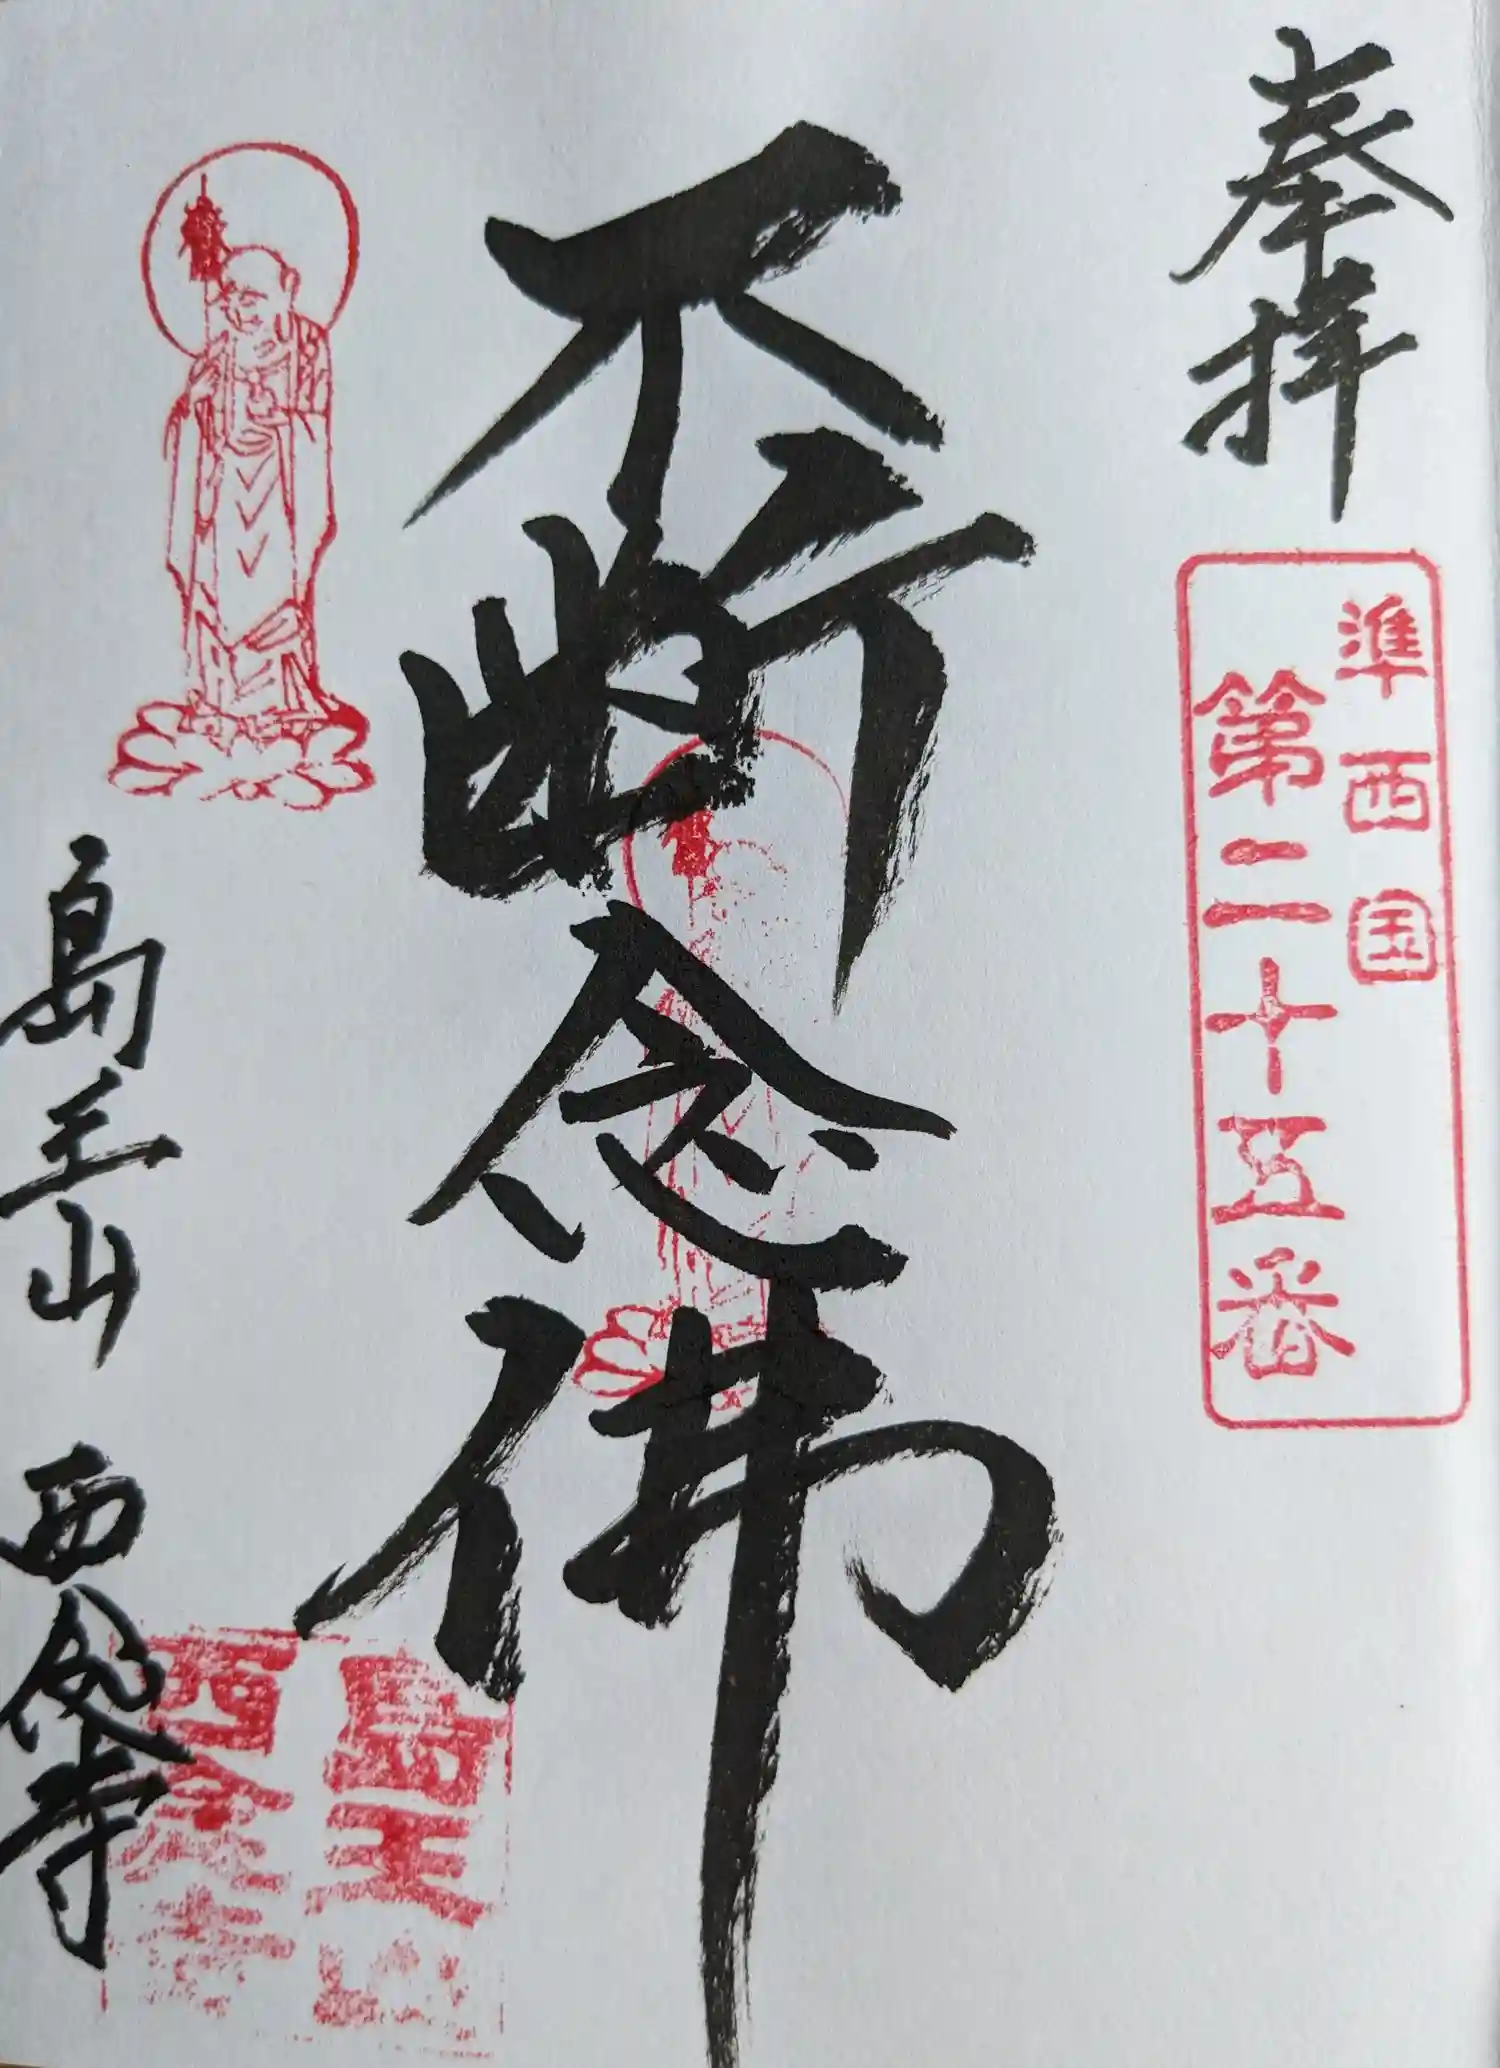 奉拝
準西国
第二十五番
不断念佛
島王山 西念寺